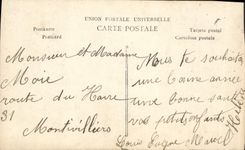 UNION POSTALE UNIVERSELLE
CARTE POSTALE
Postkarte
Postcard
Tarjeta postal
Cartolina postale
Monsieur et Madame
Moie
route du Havre
31
Montivilliers
Nous te souhaitons
une bonne année
une bonne santé
vos petits enfants
Louis Eugene Marcel